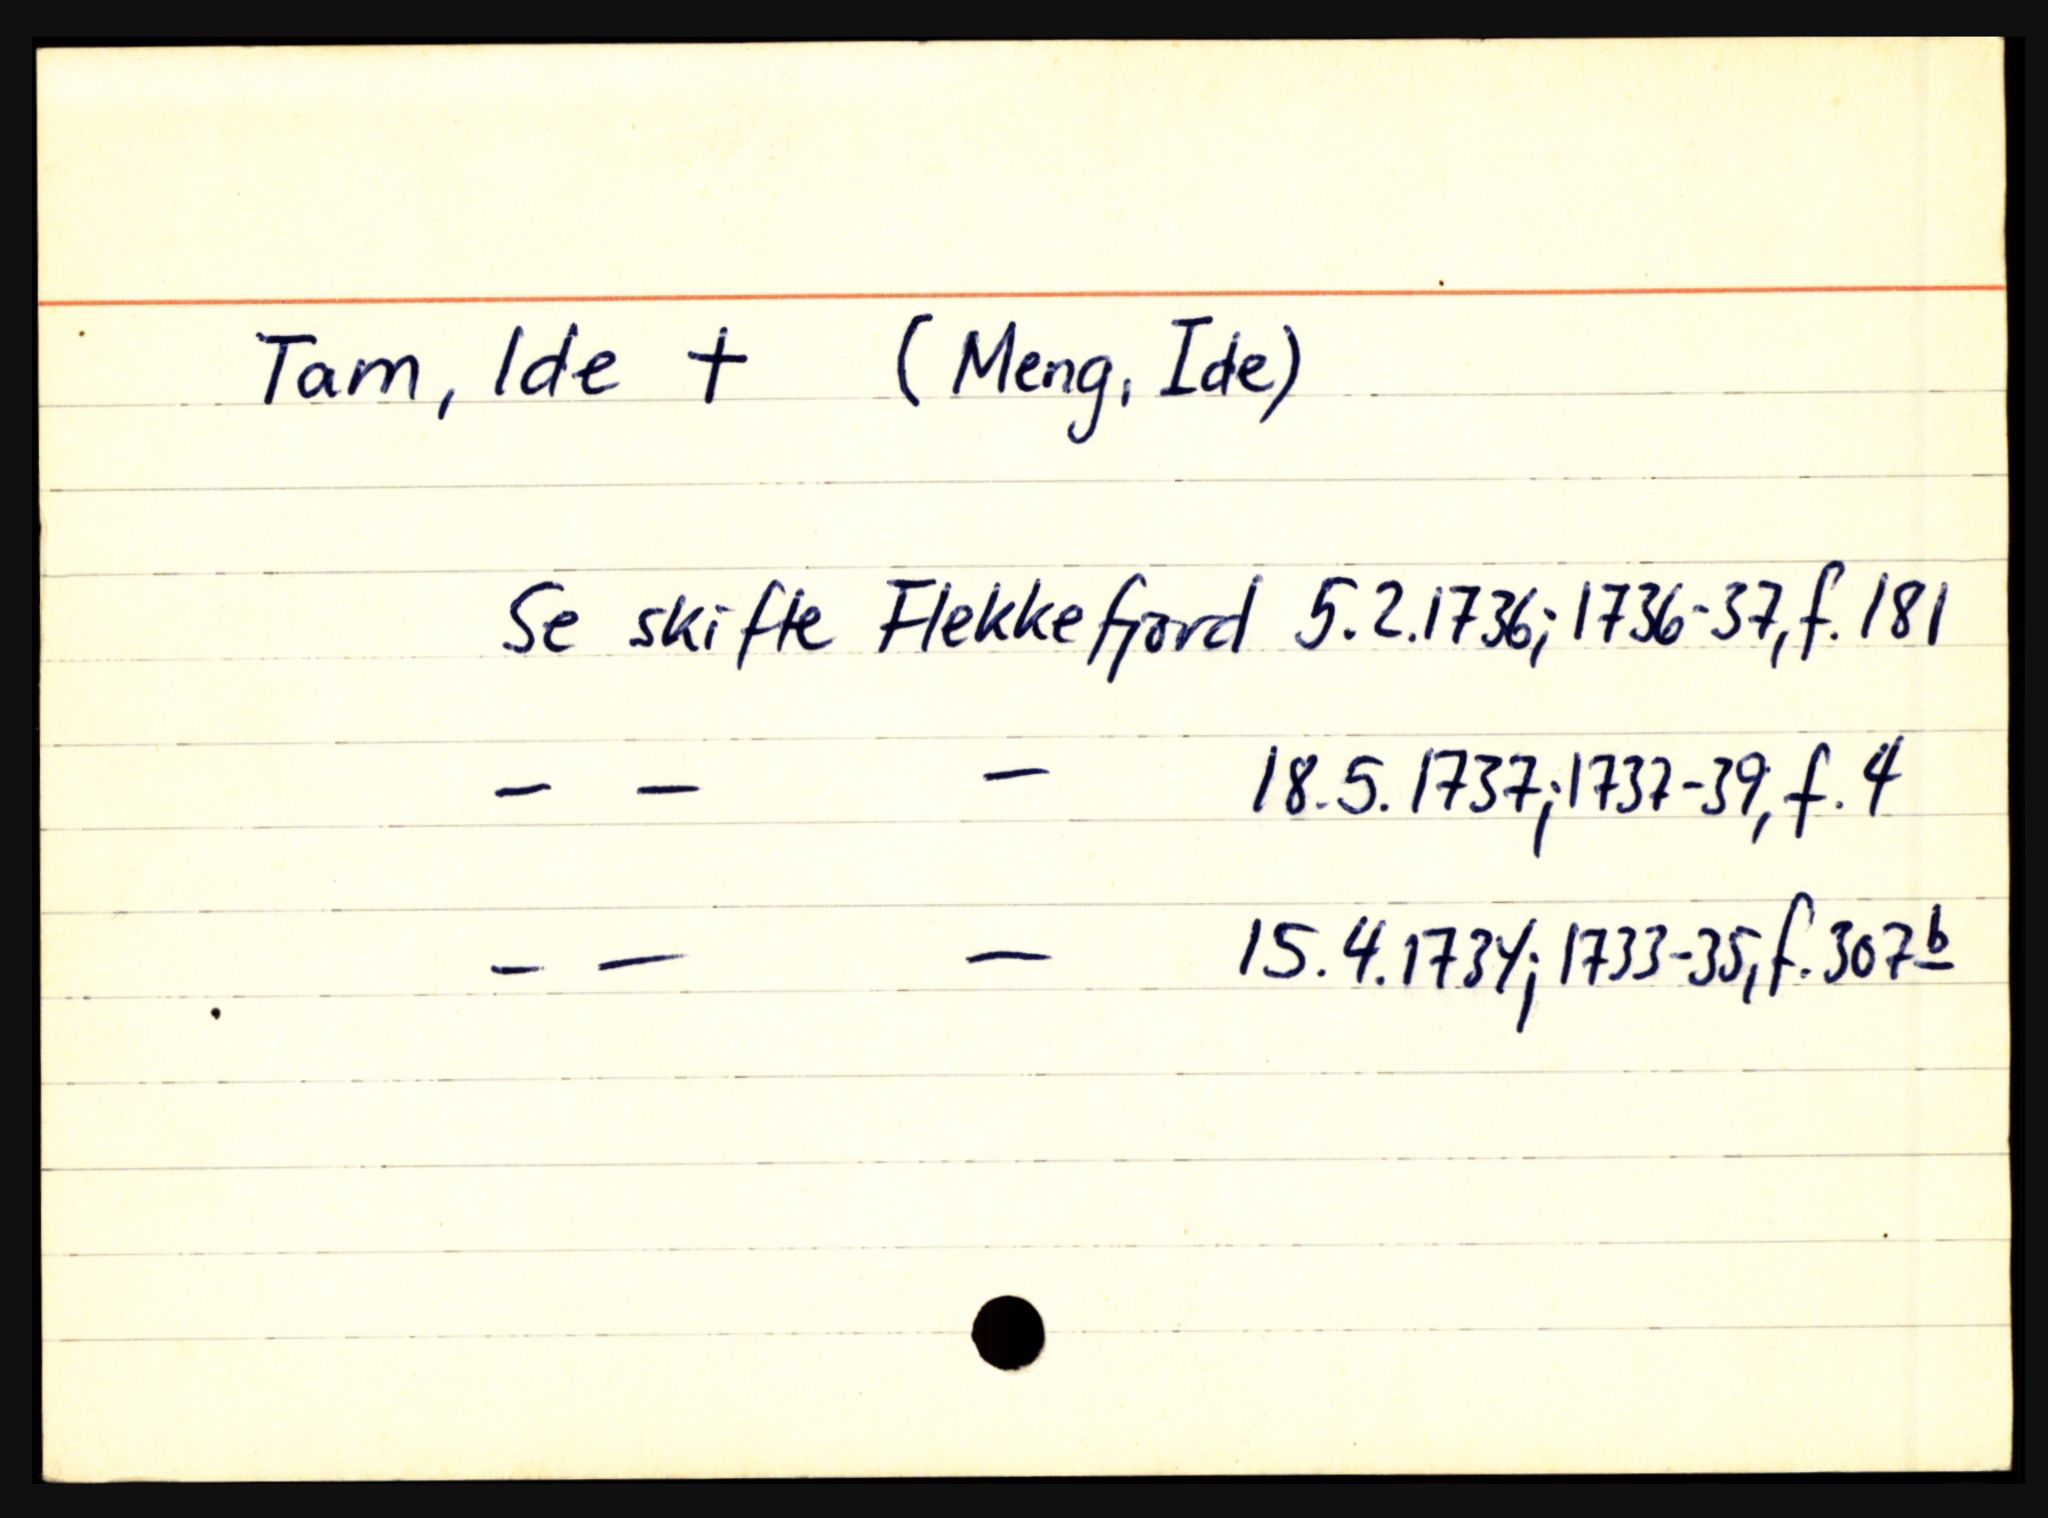 Tam, Ide † (Meng, Ide)
Se skifte Flekkefjord 5.2.1736; 1736-37, f. 181
— — — 18.5.1737; 1737-39, f. 4
— — — 15.4.1734; 1733-35, f. 307b